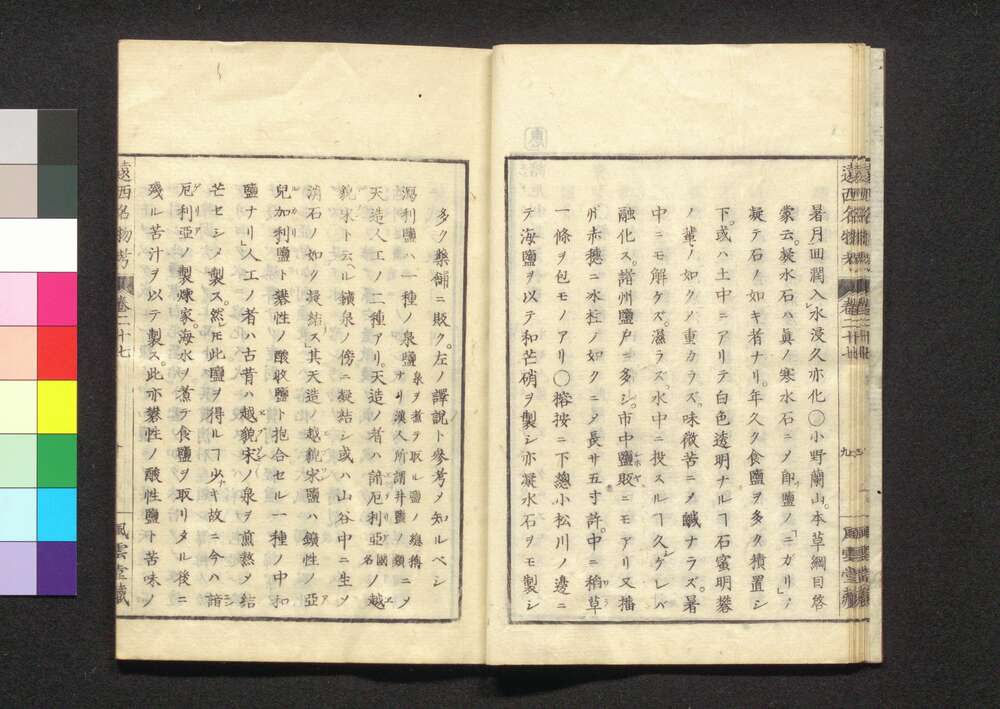 暑月回潤入水浸久亦化〇小野蘭山本草綱目啓
蒙云凝水石ハ眞ノ寒水石ニメ即鹽ノ「ニガリ」ノ
凝テ石ノ如キ者ナリ年久ク食鹽ヲ多ク積置シ
下或ハ土中ニアリテ白色透明ナルヿ石蜜明礬
ノ輩ノ如クノ重カラズ味微苦ニメ鹹ナラズ暑
中ニモ解ケズ濕ラズ水中ニ投スルヿ久ケレバ
融化ス諸州鹽戸ニ多シ市中鹽取ニモアリ又播
州赤穂ニ氷柱ノ如クニメ長サ五寸許中ニ稍草
一條ヲ包モノアリ〇榕按ニ下總小松川ノ邊ニ
テ海鹽ヲ以テ和芒硝ヲ製シ亦凝水石ヲモ製シ
遠西名物考
九
風雲堂藏
多ク藥舖ニ販ク左ノ譯説ト參考メ知ルベシ
瀉利鹽ハ一種ノ泉鹽泉ヲ煮テ取ル鹽ノ總稱ナリ漢人所謂井鹽ノ類ニメ
天造人工ノ二種アリ天造ノ者ハ諳厄利亞國名ノ越
貌宋ト云ル鑛泉ノ傍ニ凝結シ或ハ山谷中ニ生メ
消石ノ如ク凝結ス其天造ノ越貌宋鹽ハ鏀性ノ亞
兒加利鹽ト礬性ノ酸收鹽ト抱合セル一種ノ中和
鹽ナリ人工ノ者ハ古昔ハ越貌宋ノ泉ヲ煎熬メ結
芒セシメ製ス然モ此鹽ヲ得ルヿ少キ故ニ今ハ諳
厄利亞ノ製煉家海水ヲ煮テ食鹽ヲ取リタル後ニ
殘ル苦汁ヲ以テ製ス此亦礬性ノ酸性鹽ト苦味ノ
遠西名物考
卷二十七
十
風雲堂藏